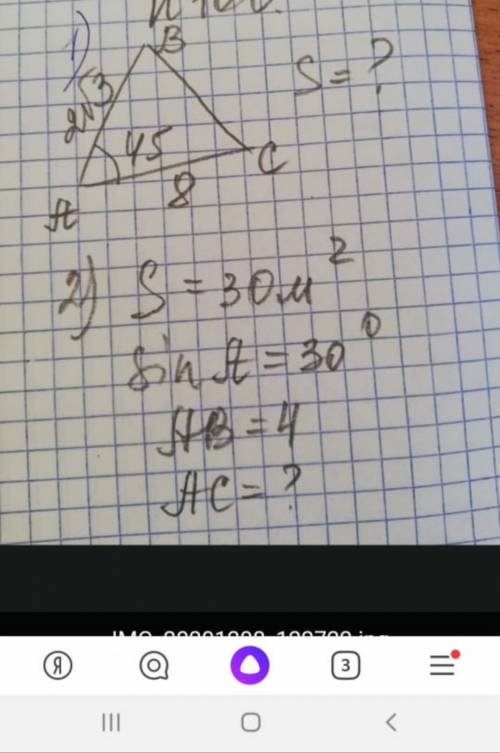 1)
B
2√3
45
C
8
A
S = ?
2) S = 30 м²
sin A = 30⁰
AB = 4
AC = ?
Я
3